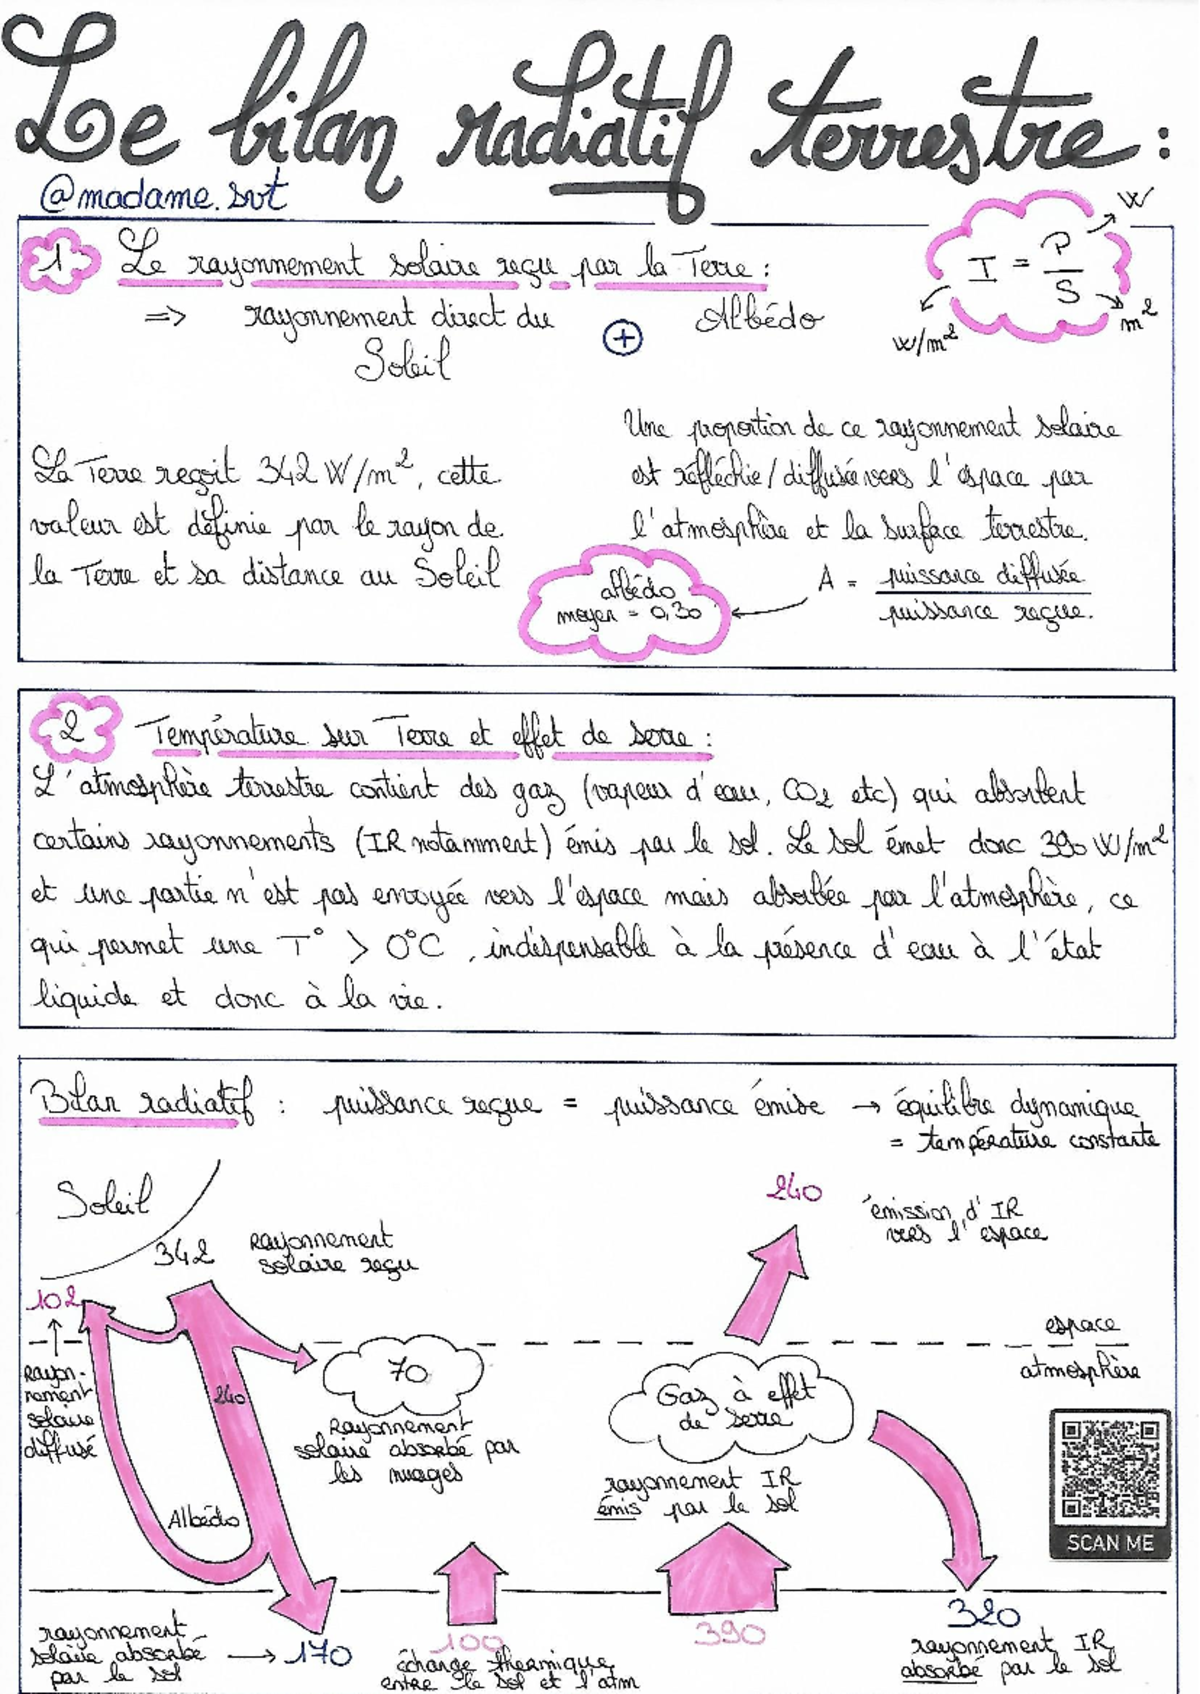 Le bilan radiatif terrestre :
@madame.svt
1 Le rayonnement solaire reçu par la Terre :
I = P / S
W
W/m²
m²
=> rayonnement direct du Soleil
+
Albédo
La Terre reçoit 342 W/m², cette
valeur est définie par le rayon de
la Terre et sa distance au Soleil
Une proportion de ce rayonnement solaire
est réfléchie/diffusée vers l'espace par
l'atmosphère et la surface terrestre.
A = puissance diffusée / puissance reçue.
albédo
moyen = 0,30
2 Température sur Terre et effet de serre :
L'atmosphère terrestre contient des gaz (vapeur d'eau, CO2 etc) qui absorbent
certains rayonnements (IR notamment) émis par le sol. Le sol émet donc 390 W/m²
et une partie n'est pas envoyée vers l'espace mais absorbée par l'atmosphère, ce
qui permet une T° > 0°C, indispensable à la présence d'eau à l'état
liquide et donc à la vie.
Bilan radiatif : puissance reçue = puissance émise → équilibre dynamique
= température constante
Soleil
342
rayonnement
solaire reçu
102
rayon-
nement
solaire
diffusé
240
Albédo
70
Rayonnement
solaire absorbé par
les nuages
240
émission d'IR
vers l'espace
espace
atmosphère
Gaz à effet
de serre
rayonnement IR
émis par le sol
SCAN ME
rayonnement
solaire absorbé
par le sol
→ 170
100
échange thermique
entre le sol et l'atm
390
320
rayonnement IR
absorbé par le sol